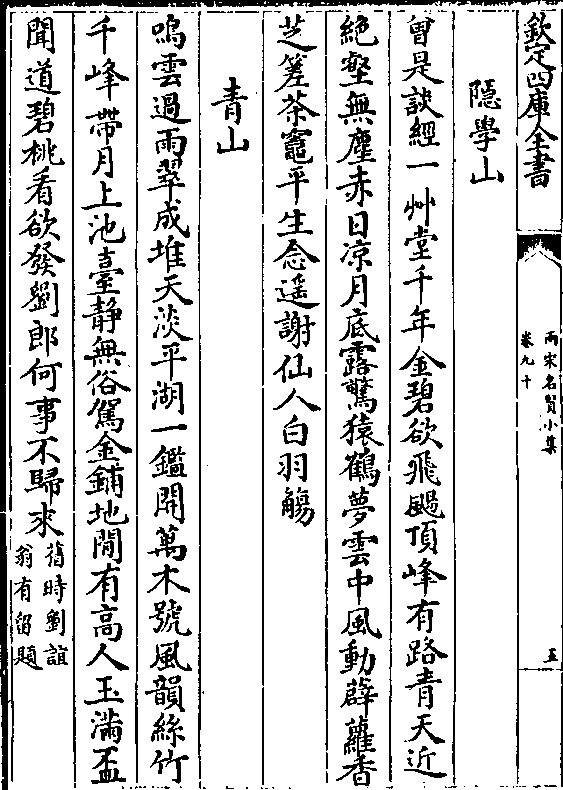 欽定四庫全書
兩宋名賢小集
卷九十
五
隠學山
曾是談經一艸堂千年金碧欲飛颺頂峰有路青天近
絶壑無塵赤日凉月底露驚猿鶴夢雲中風動薜蘿香
芝筳茶竈平生念遥謝仙人白羽觴
青山
鳴雲過雨翠成堆天淡平湖一鑑開萬木號風韻絲竹
千峰帶月上池臺静無俗駕金鋪地閒有高人玉滿盃
聞道碧桃看欲發劉郎何事不歸來舊時劉誼
翁有留題